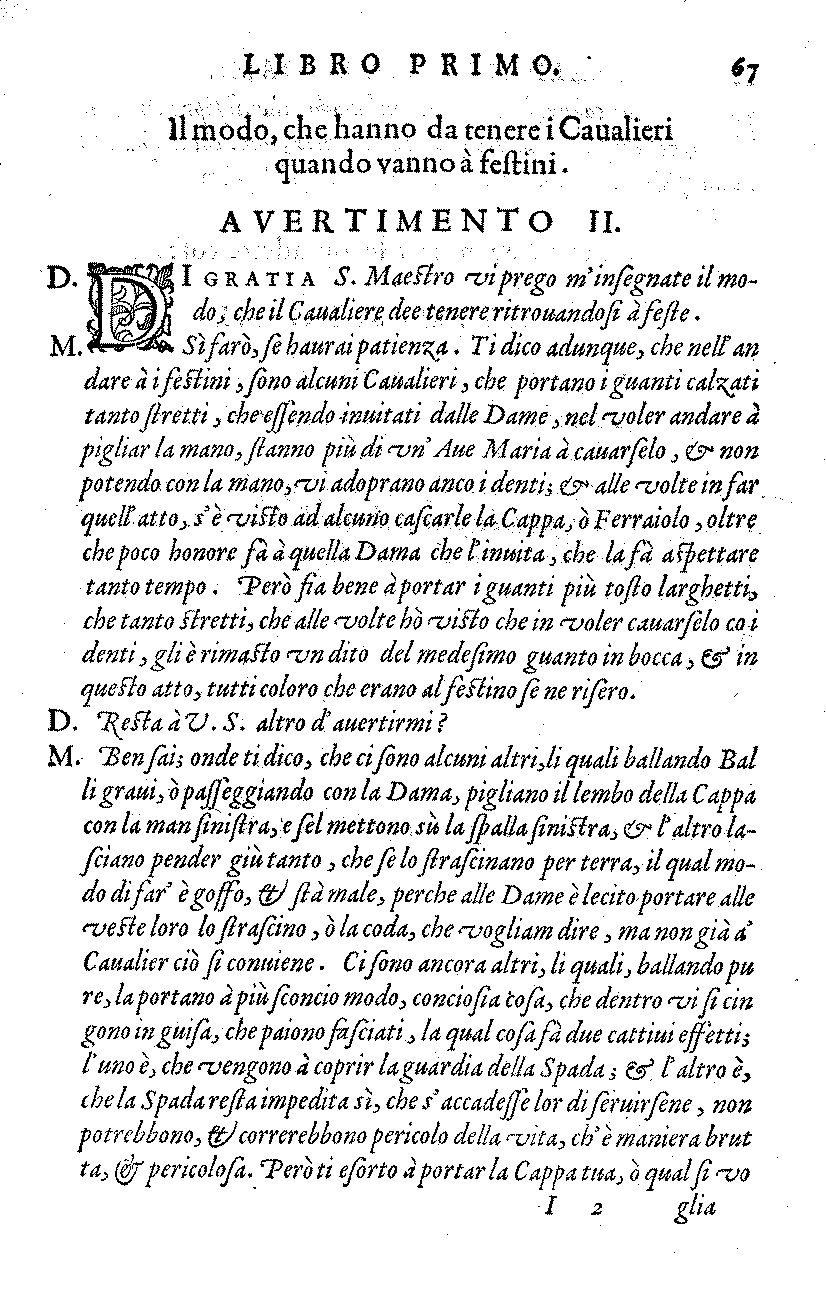 LIBRO PRIMO. 67
Il modo, che hanno da tenere i Caualieri
quando vanno à feſtini.
AVERTIMENTO II.
D. DI GRATIA S. Maeſtro vi prego m'inſegnate il mo-
do, che il Caualiere dee tenere ritrouandoſi à feſte.
M. Sì farò, ſe haurai patienza. Ti dico adunque, che nell'an
dare à i feſtini, ſono alcuni Caualieri, che portano i guanti calzati
tanto ſtretti, che eſſendo inuitati dalle Dame, nel voler andare à
pigliar la mano, ſtanno più di vn' Aue Maria à cauarſelo, & non
potendo con la mano, vi adoprano anco i denti; & alle volte in far
quell'atto, s'è viſto ad alcuno caſcarle la Cappa, ò Ferraiolo, oltre
che poco honore fà à quella Dama che l'inuita, che la fà aſpettare
tanto tempo. Però fia bene à portar i guanti più toſto larghetti,
che tanto ſtretti, che alle volte hò viſto che in voler cauarſelo co i
denti, gli è rimaſto vn dito del medeſimo guanto in bocca, & in
queſto atto, tutti coloro che erano al feſtino ſe ne riſero.
D. Reſta à V. S. altro d'auertirmi?
M. Ben ſai; onde ti dico, che ci ſono alcuni altri, li quali ballando Bal
li graui, ò paſſeggiando con la Dama, pigliano il lembo della Cappa
con la man ſiniſtra, e ſel mettono sù la ſpalla ſiniſtra, & l'altro la-
ſciano pender giù tanto, che ſe lo ſtraſcinano per terra, il qual mo-
do di far' è goffo, & ſtà male, perche alle Dame è lecito portare alle
veſte loro lo ſtraſcino, ò la coda, che vogliam dire, ma non già à
Caualier ciò ſi conuiene. Ci ſono ancora altri, li quali, ballando pu
re, la portano à più ſconcio modo, concioſia coſa, che dentro vi ſi cin
gono in guiſa, che paiono faſciati, la qual coſa fà due cattiui effetti;
l'uno è, che vengono à coprir la guardia della Spada; & l'altro è,
che la Spada reſta impedita sì, che s'accadeſſe lor di ſeruirſene, non
potrebbono, & correrebbono pericolo della vita, ch'è maniera brut
ta, & pericoloſa. Però ti eſorto à portar la Cappa tua, ò qual ſi vo
I 2 glia